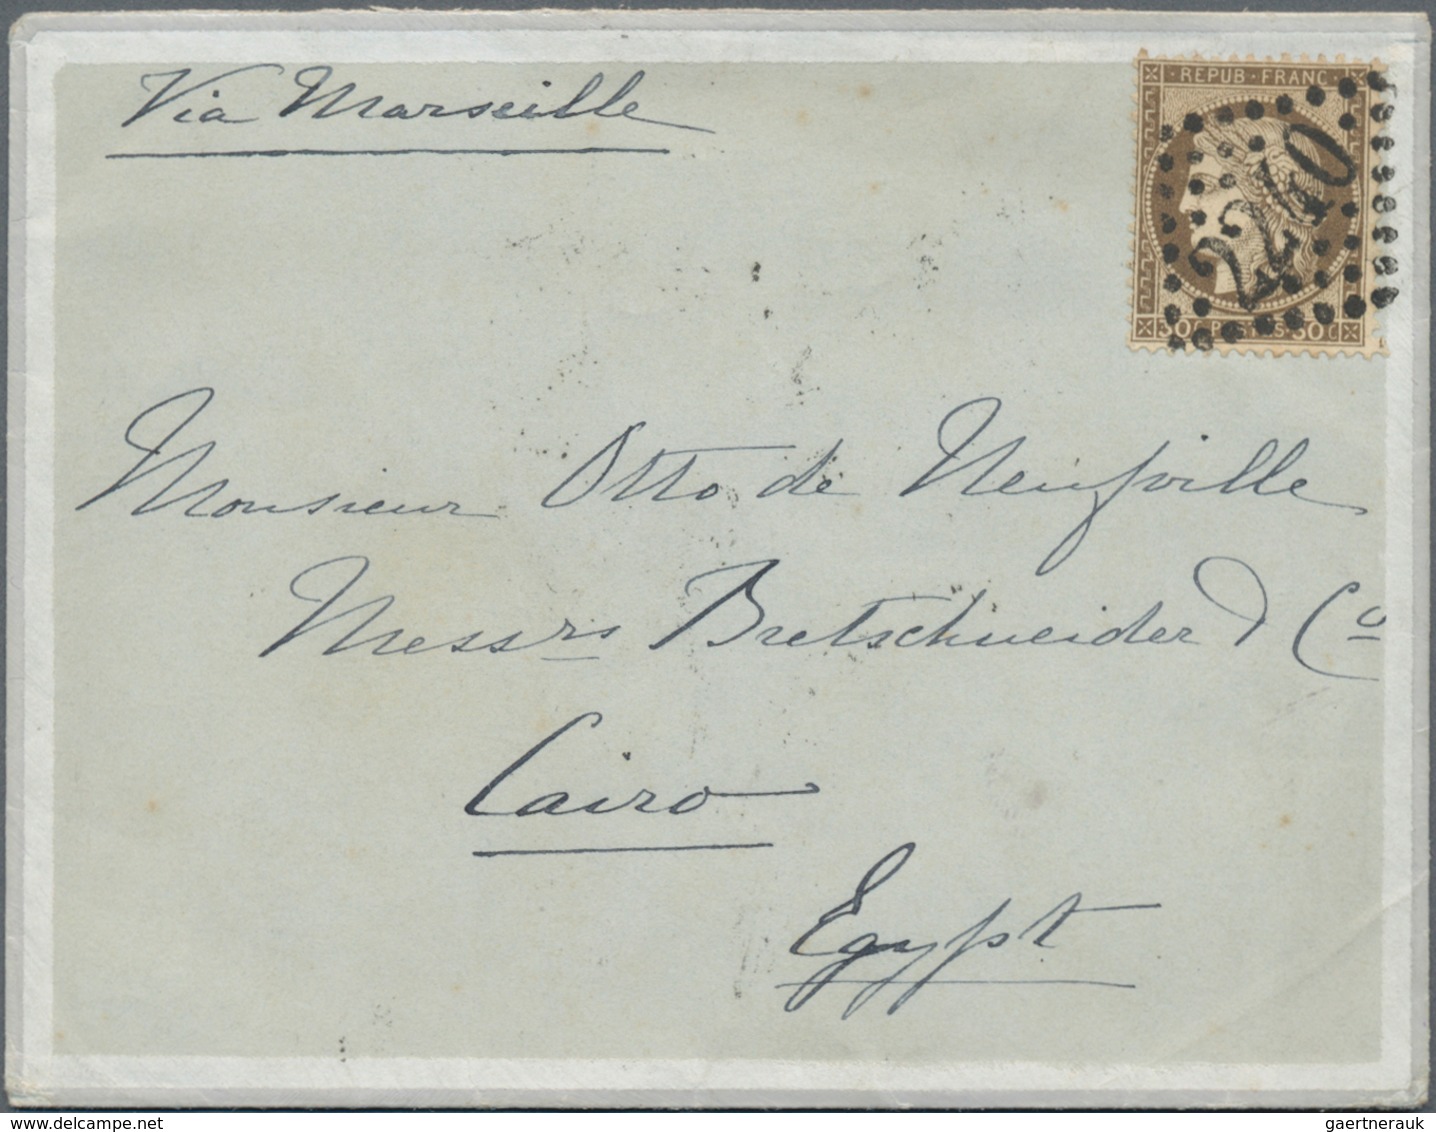 Via Marseille
REPUB · FRANC
2240
30 C POSTES 30 C
Monsieur Otto de Neufville
Messrs Bretschneider & Co
Cairo
Egypt
gaertnerauk @ delcampe.net